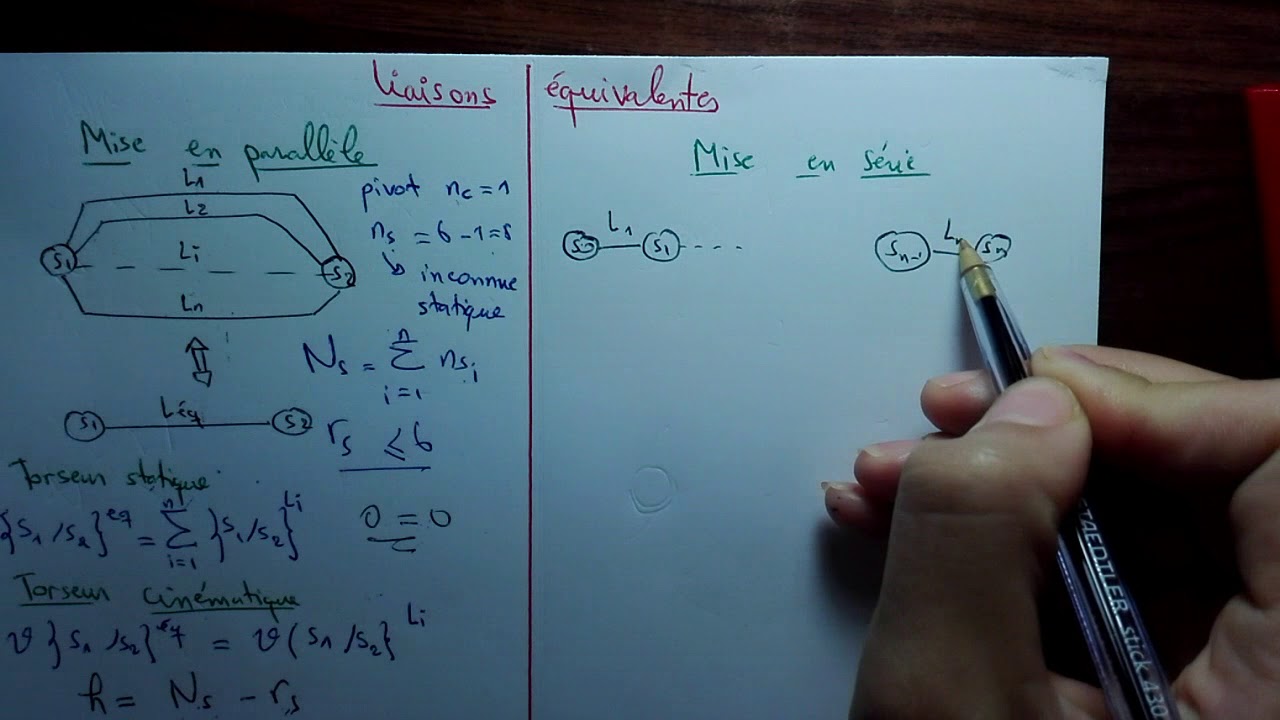 Liaisons équivalentes
Mise en parallèle
L1
L2
Li
Ln
S1
S2
pivot nc = 1
ns = 6 - 1 = 5
inconnue
statique
Ns = Σ nsi
n
i=1
S1 Léq S2
rs ≤ 6
Torseur statique
{S1/S2}^eq = Σ {S1/S2}^Li
n
i=1
0 = 0
Torseur cinématique
ϑ{S1/S2}^eq = ϑ(S1/S2}^Li
h = Ns - rs
Mise en série
L1
S0 S1 - - - -
Sn-1 Sn
STAEDTLER stick 430